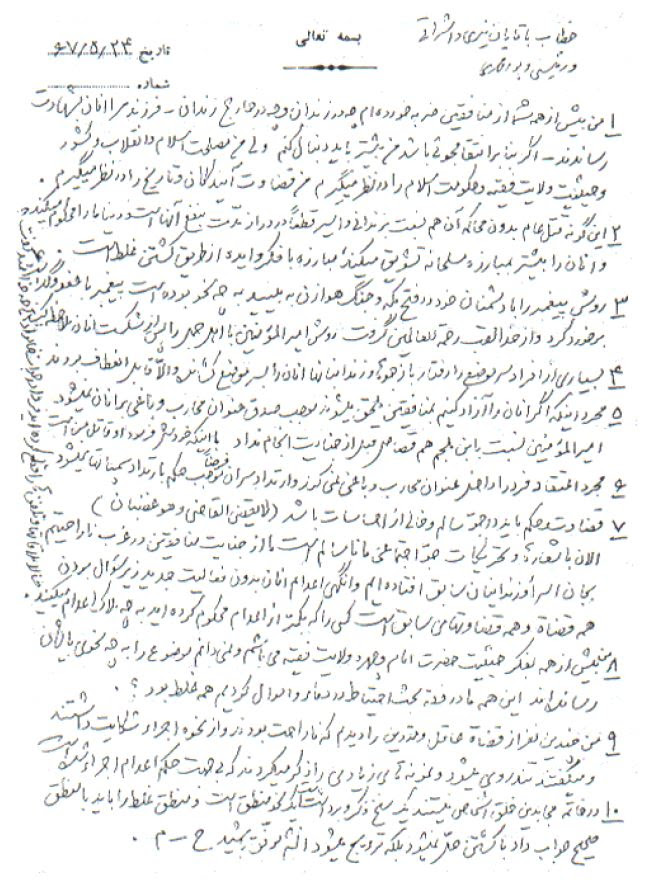 بسمه تعالی
خطاب به آقایان نیری و اشراقی
و رئیسی و پورمحمدی
تاریخ ۶۷/۵/۲۴
شماره
۱ من بیش از همه شما از منافقین ضربه خورده‌ام چه در زندان و چه در خارج زندان - فرزند مرا آنان بشهادت
رساندند - اگر بنا بر انتقامجوئی باشد من بیشتر باید دنبال کنم ولی من مصلحت اسلام و انقلاب و کشور
و حیثیت ولایت فقیه و حکومت اسلام را در نظر میگیرم من قضاوت آیندگان و تاریخ را در نظر میگیرم .
۲ این گونه قتل عام بدون محاکمه آن هم نسبت بزندانی و اسیر قطعاً در درازمدت بنفع آنها است و دنیا ما را محکوم میکند
و آنان را بیشتر بمبارزه مسلحانه تشویق میکند، مبارزه با فکر و ایده از طریق کشتن غلط است .
۳ روش پیغمبر را با دشمنان خود در فتح مکه و جنگ هوازن به ببینید به چه نحو بوده است پیغمبر با عفو و گذشت
برخورد کرد و از خدا لقب رحمة للعالمین گرفت روش امیرالمؤمنین با اهل جمل را پس از شکست آنان ملاحظه کنید
۴ بسیاری از افراد سر موضع را رفتار بازجوها و زندانبانها آنان را بسر موضع کشانده والا قابل انعطاف بودند
۵ مجرد اینکه اگر آنان را آزاد کنیم بمنافقین ملحق میشوند موجب صدق عنوان محارب و باغی بر آنان نمیشود
امیرالمؤمنین نسبت بابن ملجم هم قصاص قبل از جنایت انجام نداد با اینکه خودش فرمود او قاتل من است
۶ مجرد اعتقاد فرد را داخل عنوان محارب و باغی نمی کند و ارتداد سران فرضاً موجب حکم بارتداد سمپاتها نمیشود
۷ قضاوت و حکم باید در جو سالم و خالی از احساسات باشد (لایقضی القاضی و هو غضبان)
الان با شعارها و تحریکات جو اجتماعی ما ناسالم است ما از جنایت منافقین در غرب ناراحتیم
بجان اسرا و زندانیان سابق افتاده ایم وانگهی اعدام آنان بدون فعالیت جدید زیر سؤال بردن
همه قضاة و همه قضاوتهای سابق است کسی را که بکمتر از اعدام محکوم کرده اید به چه ملاک اعدام میکنید .
۸ من بیش از همه بفکر حیثیت حضرت امام و چهره ولایت فقیه می باشم و نمی دانم موضوع را به چه نحوی بایشان
رسانده‌اند این همه ما در فقه بحث احتیاط در دماء و اموال کردیم همه غلط بود ؟ .
۹ من چندین نفر از قضاة عاقل و متدین را دیدم که ناراحت بودند و از نحوه اجراء شکایت داشتند
و میگفتند تندروی میشود و نمونه های زیادی را ذکر میکردند که بی جهت حکم اعدام اجراء شده است
۱۰ در خاتمه مجاهدین خلق اشخاص نیستند یک سنخ فکر و برداشت است یک نحو منطق است و منطق غلط را باید با منطق
صحیح جواب داد با کشتن حل نمیشود بلکه ترویج میشود انشاءالله موفق باشید ح - م .